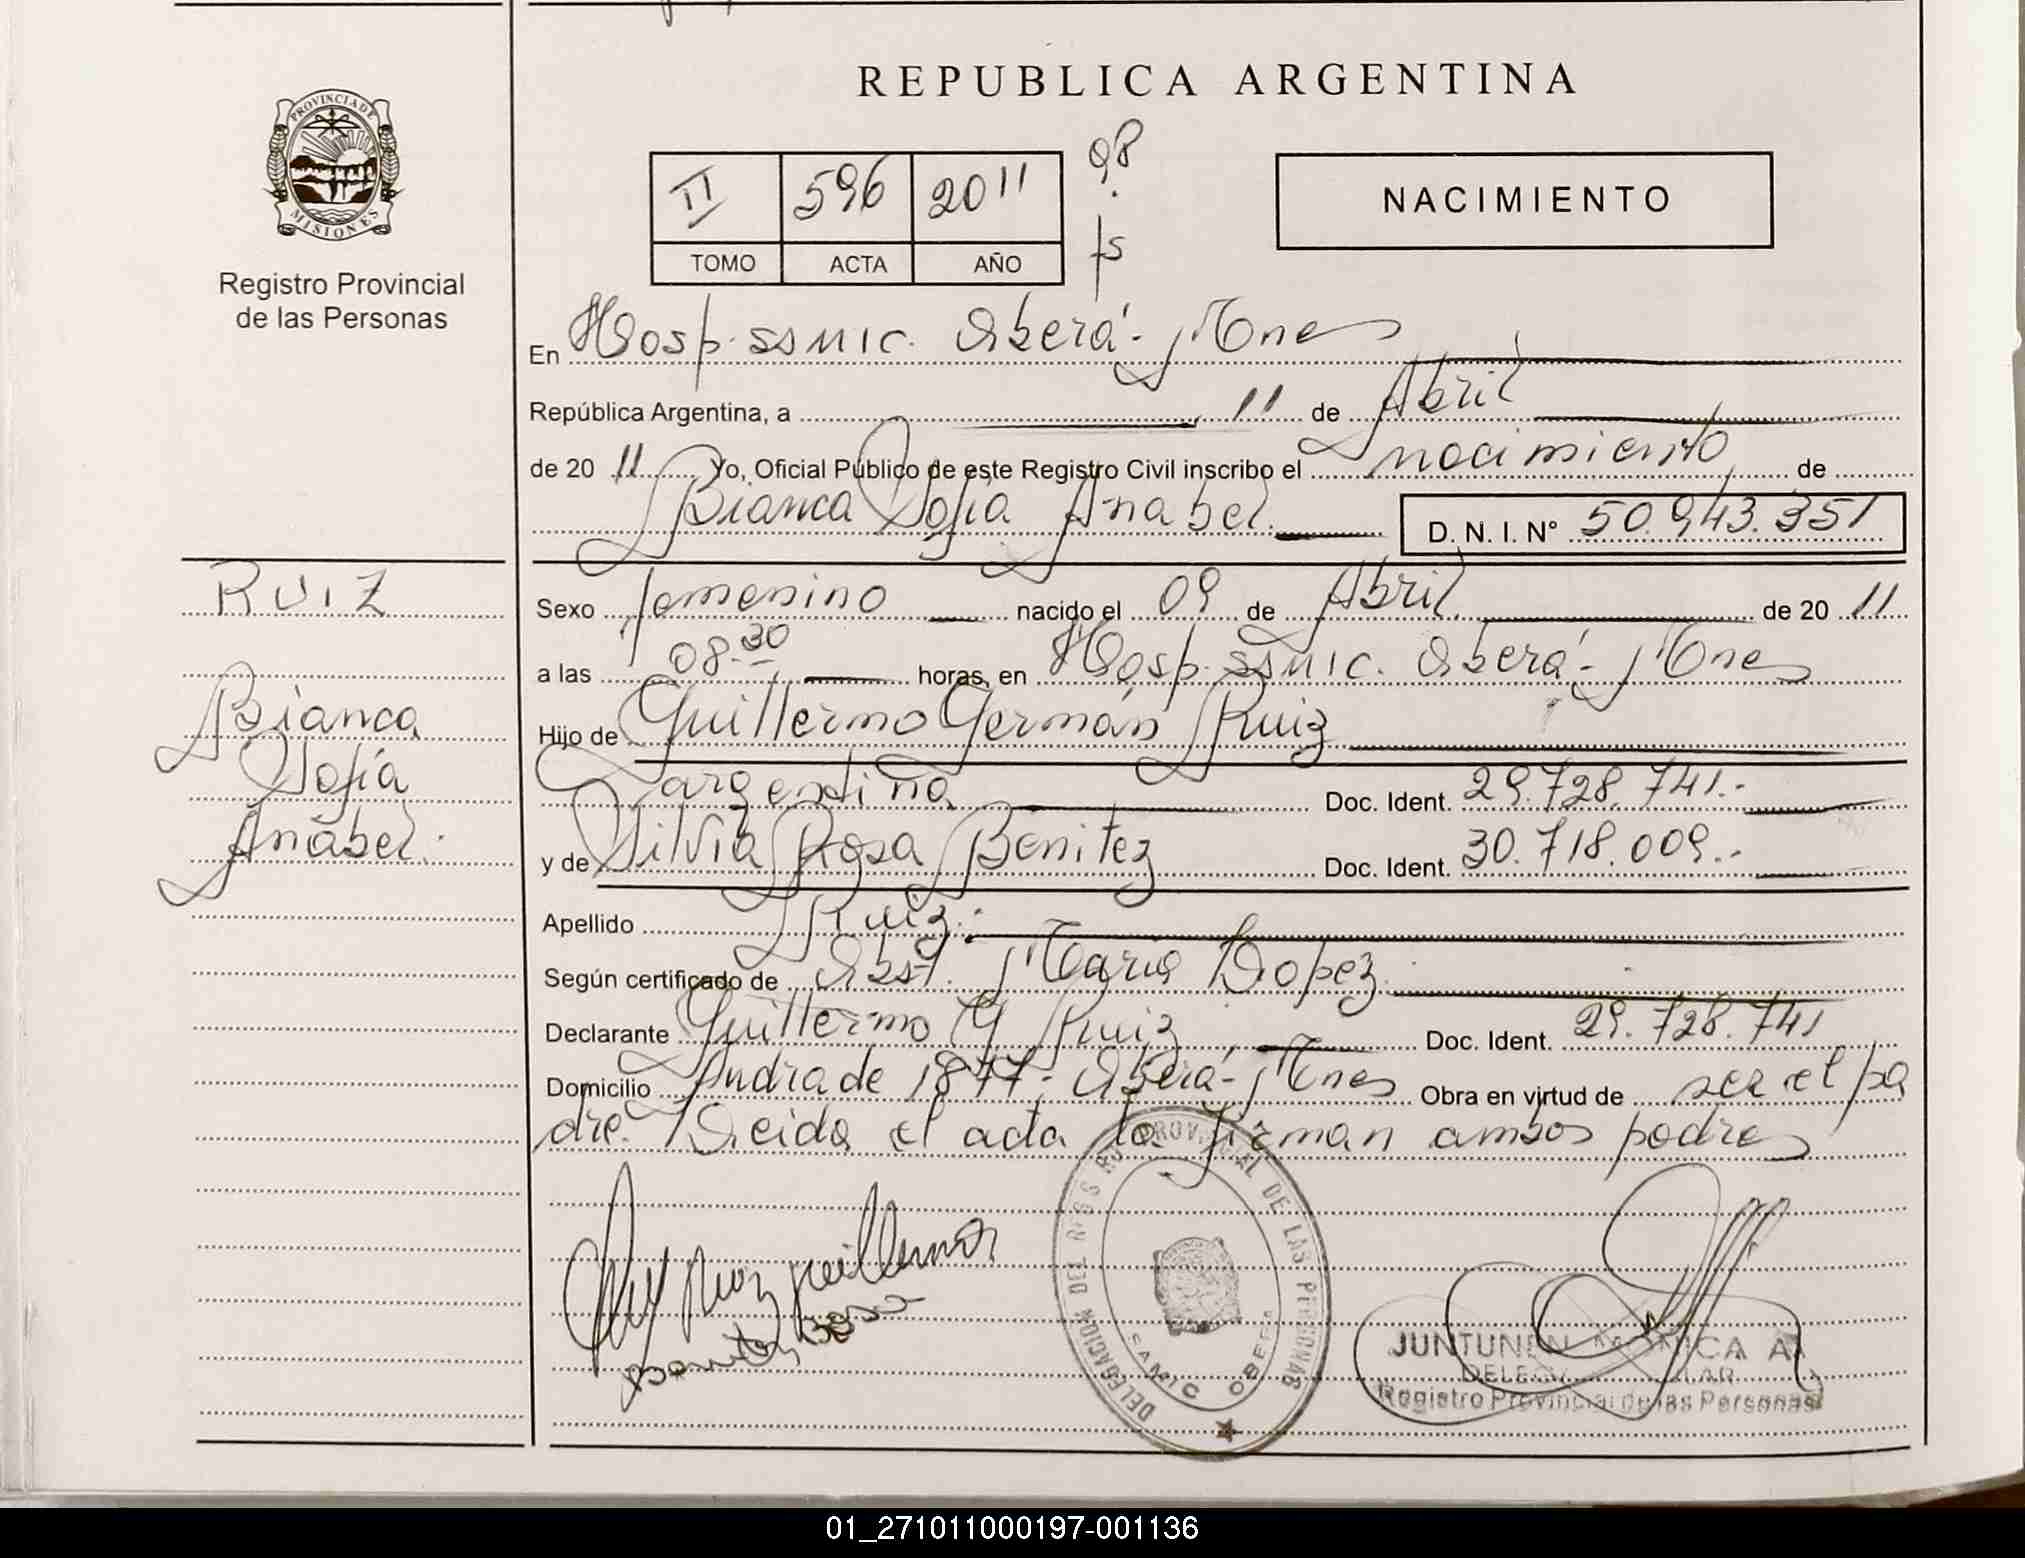 REPUBLICA ARGENTINA
PROVINCIA DE
MISIONES
Registro Provincial
de las Personas
II 596 2011 98
TOMO ACTA AÑO fs
NACIMIENTO
En Hosp. SSMIC. Oberá - Mnes
República Argentina, a 11 de Abril
de 20 11 Yo, Oficial Público de este Registro Civil inscribo el nacimiento de
Bianca Sofía Anabel. D. N. I. N° 50.943.351
RUIZ
Bianca
Sofía
Anabel.
Sexo femenino nacido el 09 de Abril de 20 11
a las 08.30 horas, en Hosp. SSMIC. Oberá - Mnes
Hijo de Guillermo Germán Ruiz
argentina Doc. Ident. 29.728.741.-
y de Silvia Rosa Benitez Doc. Ident. 30.718.009.-
Apellido Ruiz.
Según certificado de Obst. María Lopez.
Declarante Guillermo G Ruiz Doc. Ident. 29.728.741
Domicilio Andrade 1877 - Oberá - Mnes Obra en virtud de ser el pa
dre. Leida el acta la firman ambos padres
Ruiz Guillermo
Benitez Rosa
DELEGACION DEL REGISTRO PROVINCIAL DE LAS PERSONAS
SAMIC OBERA
JUNTUNEN MONICA A.
Registro Provincial de las Personas
01_271011000197-001136